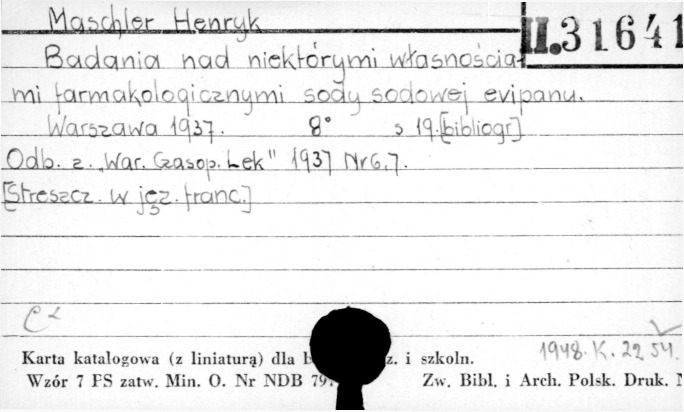 Maschler Henryk
II.31641
Badania nad niektórymi własnościa
mi farmakologicznymi sody sodowej evipanu.
Warszawa 1937. 8° s 19.[bibliogr]
Odb. z. „War. Czasop. Lek" 1937 Nr 6,7.
[Streszcz. w jęz. franc.]
1948.K.2254.
Karta katalogowa (z liniaturą) dla b z. i szkoln.
Wzór 7 PS zatw. Min. O. Nr NDB 79 Zw. Bibl. i Arch. Polsk. Druk.